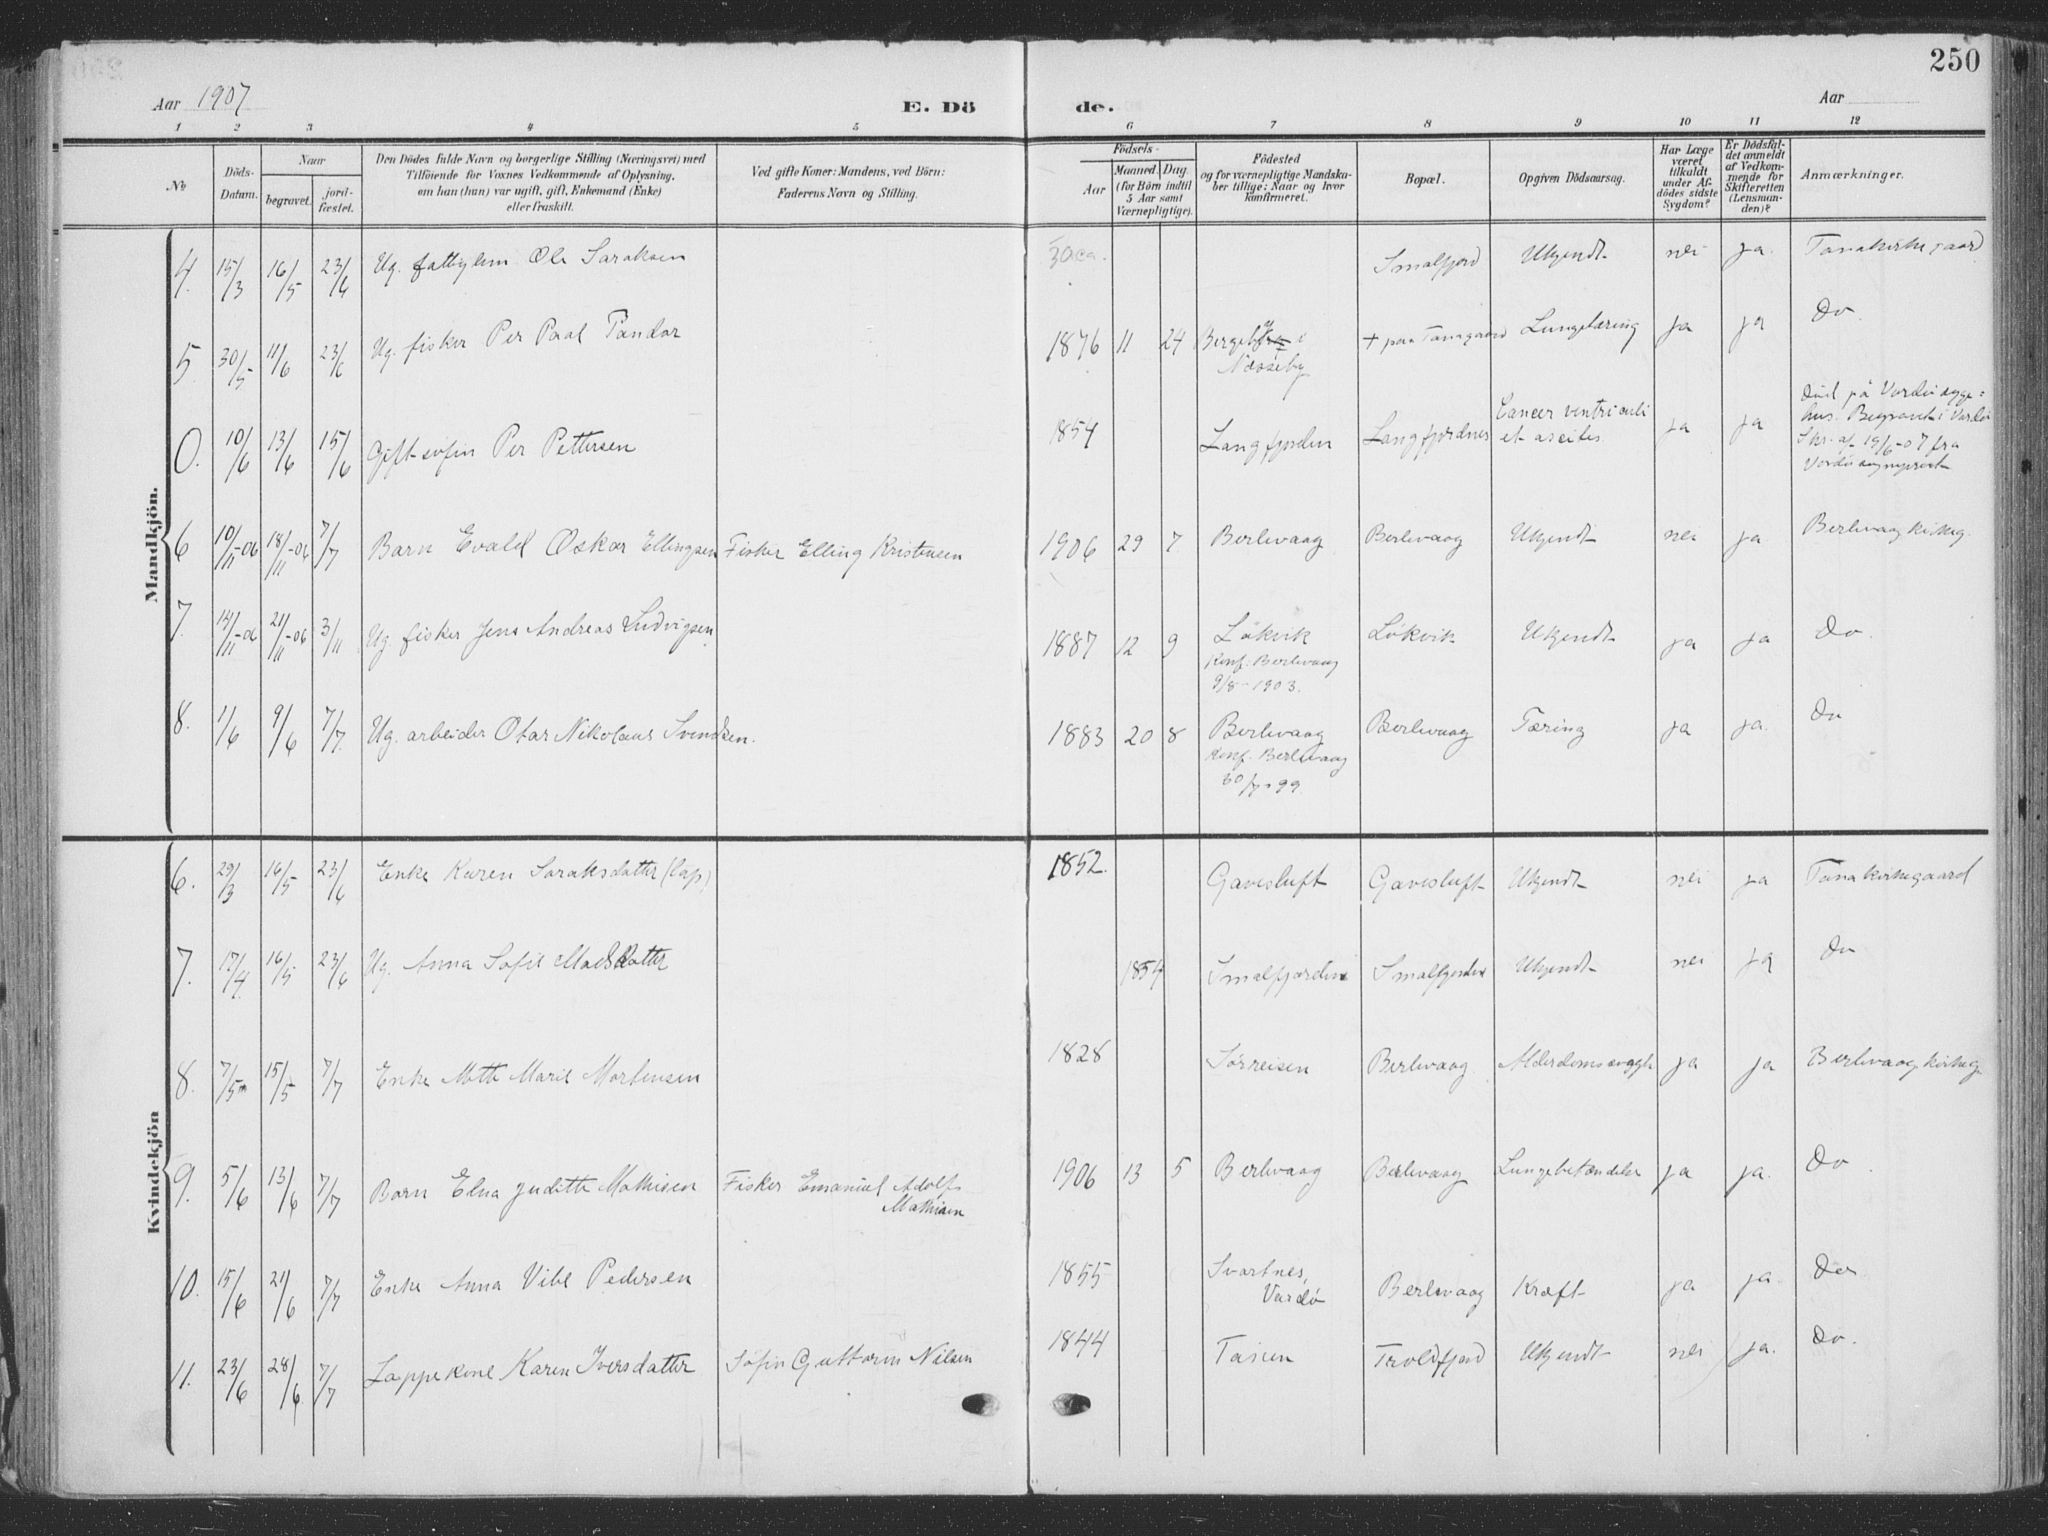 250
Aar 1907 E. Dö de. Aar
1 2 3 4 5 6 7 8 9 10 11 12
No
Döds-Datum.
Naar
begravet.
jordfæstet.
Den Dödes fulde Navn og borgerlige Stilling (Næringsvei) med
Tilföiende for Voxnes Vedkommende af Oplysning,
om han (hun) var ugift, gift, Enkemand (Enke)
eller fraskilt.
Ved gifte Koner: Mandens, ved Börn:
Faderens Navn og Stilling.
Födsels-
Aar
Maaned. Dag.
(for Börn indtil
5 Aar samt
Værnepligtige).
Födested
og for værnepligtige Mandska-
ber tillige: Naar og hvor
konfirmeret.
Bopæl.
Opgiven Dödsaarsag.
Har Læge
været
tilkaldt
under Af-
dödes sidste
Sygdom?
Er Dödsfal-
det anmeldt
af Vedkom-
mende for
Skifteretten
(Lensman-
den)?
Anmærkninger.
Mandkjön.
4. 15/3 16/5 23/6 Ug. Ole Saraksen 30 ca. Smalfjord Ukjendt nei ja. Tanakirkegaard
5 30/5 11/6 23/6 Ug. fisker Per Paal Tandar 1876 11 24 i Næsseby + paa Lungetæring ja ja Do
0. 10/6 13/6 15/6 Gift søfin Per Pettersen 1854 Langfjorden Langfjordnes Cancer ventriculi et ascites ja ja Død på Vardø syge-
hus. Begravet i Vardø
Skr. af 19/6-07 fra
Vardø sogneprest
6 10/11-06 18/11-06 7/7 Barn Evald Oskar Ellingsen Fisker Elling Kristensen 1906 29 7 Berlevaag Berlevaag Ukjendt nei ja Berlevaag kirkeg.
7. 14/11-06 21/11-06 3/11 Ug. fisker Jens Andreas Ludvigsen 1887 12 9 Løkvik Løkvik Ukjendt ja ja Do.
Konf. Berlevaag
9/8-1903.
8. 1/6 9/6 7/7. Ug. arbeider Otar Nikolaus Svendsen. 1883 20 8 Berlevaag Berlevaag Tæring ja ja. Do
Konf. Berlevaag
30/7-99.
Kvindekjön
6. 29/3 16/5 23/6 Enke Karen Saraksdatter (lap) 1852. Gavesluft Gavesluft Ukjendt nei ja Tanakirkegaard
7. 17/4. 16/5 23/6 Ug. Anna Sofie Madsdatter 1854 Smalfjorden Smalfjorden Ukjendt nei ja Do
8. 7/5 15/5 7/7 Enke Mette Marie Mortensen 1828 Sørreisen Berlevaag Alderdomssvaghed ja ja Berlevaag kirkeg.
9. 5/6 13/6 7/7 Barn Elna Juditte Mathisen Fisker Emanuel Adolf
Mathisen 1906 13 5 Berlevaag Berlevaag Lungebetændelse ja ja. Do
10. 15/6 21/6 7/7 Enke Anna Vibe Pedersen 1855 Svartnes,
Vardø Berlevaag Kræft ja ja. Do
11. 23/6 28/6 7/7 Lappekone Karen Iversdatter Søfin Guttorm Nilsen 1844 Tanen Troldfjord Ukjendt nei ja. Do.